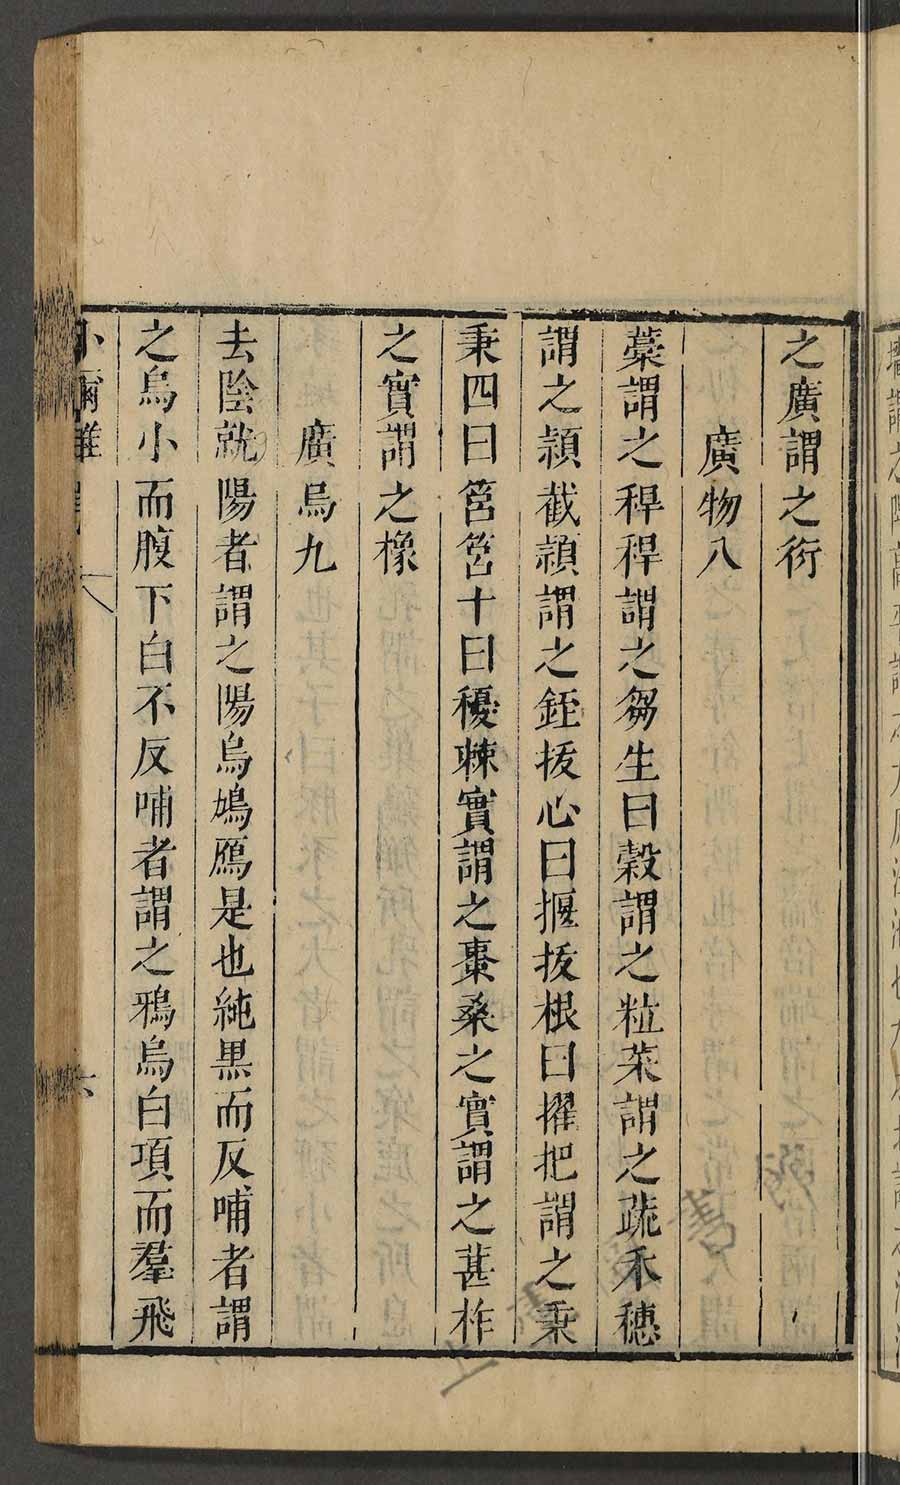 之廣謂之衍
廣物八
藁謂之稈稈謂之芻生曰穀謂之粒菜謂之蔬禾穗
謂之穎截穎謂之銍拔心曰揠拔根曰擢把謂之秉
秉四曰筥筥十曰稯棘實謂之棗桑之實謂之葚柞
之實謂之橡
廣烏九
去陰就陽者謂之陽烏鳩鴈是也純黒而反哺者謂
之烏小而腹下白不反哺者謂之鴉烏白項而羣飛
小爾雅
六